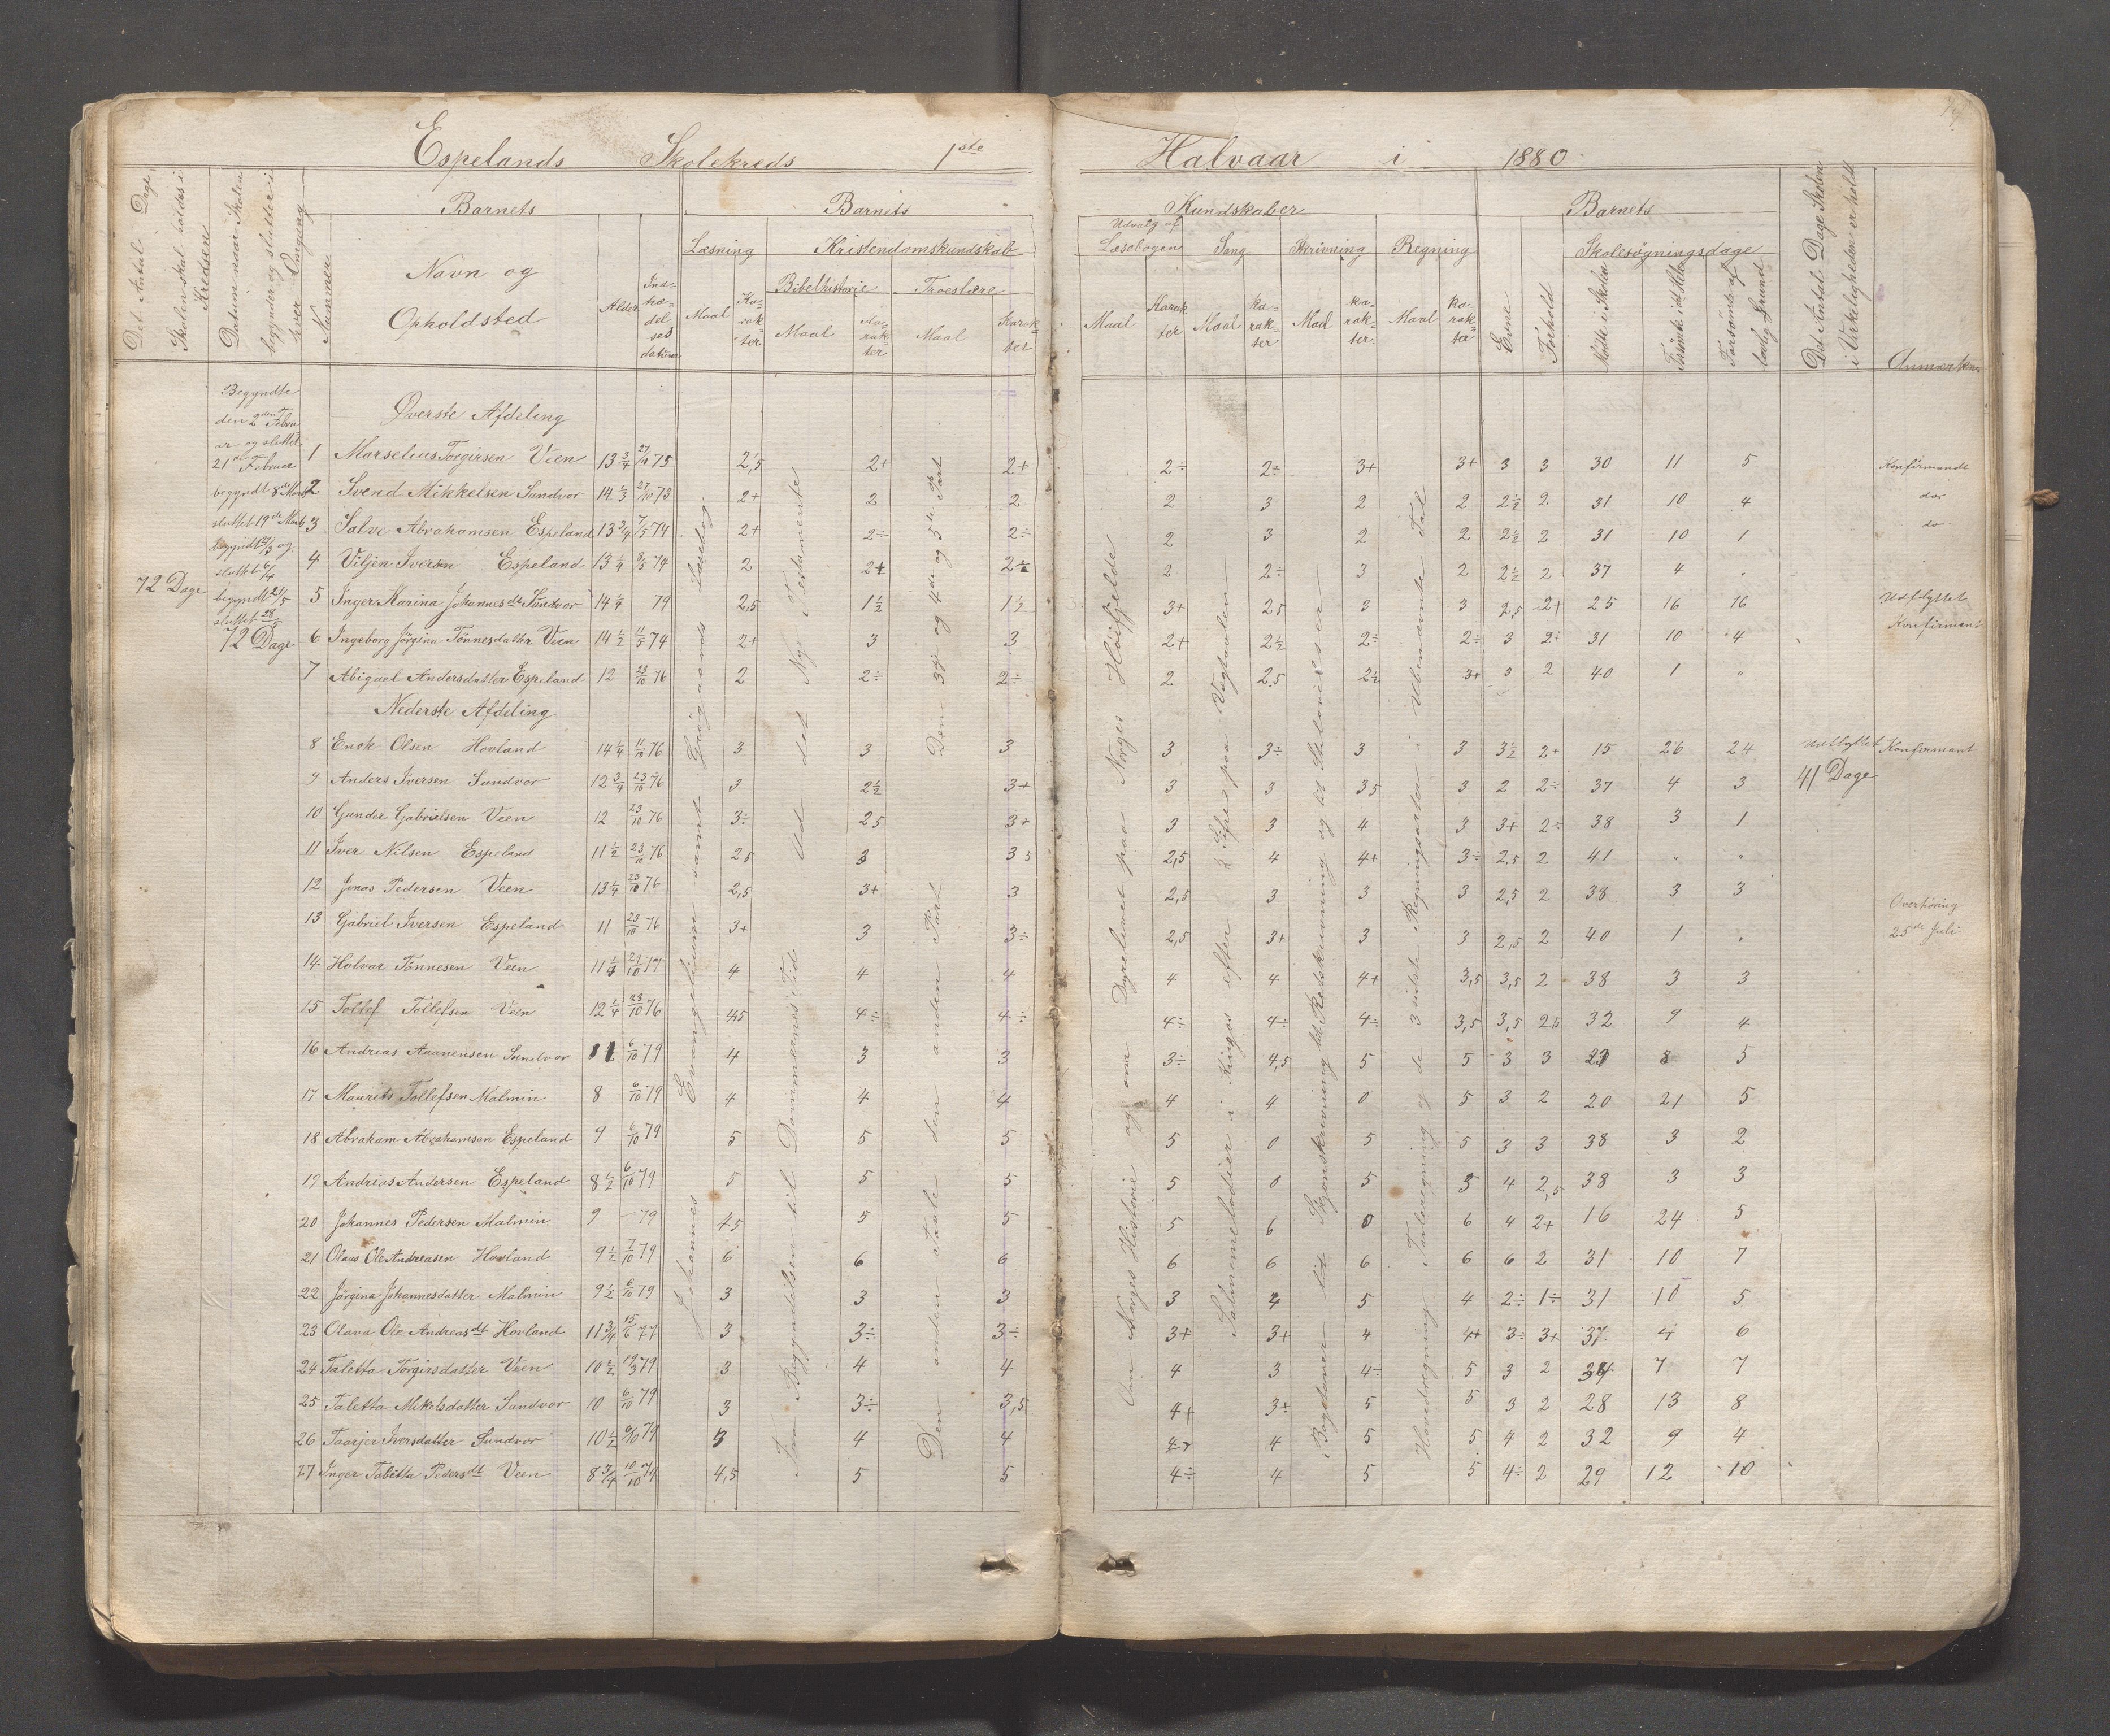 Espelands Skolekreds 1ste Halvaar i 1880
Det Antal Dage, Skolen skal holdes i Kredsen
Datum naar Skolen begynder og slutter i hver Omgang
Nummer
Barnets
Navn og Opholdsted
Alder
Indtrædelsesdatum
Barnets Kundskaber
Læsning
Maal
Karakter
Kristendomskundskab
Bibelhistorie
Maal
Karakter
Troeslære
Maal
Karakter
Udvalg af Læsebogen
Maal
Karakter
Sang
Maal
Karakter
Skrivning
Maal
Karakter
Regning
Maal
Karakter
Barnets
Evne
Forhold
Skolesøgningsdage
Mødte i Skolen
Forsømte i det Hele
Forsømte af lovlig Grund
Det Antal Dage Skolen i Virkeligheden er holdt
72 Dage
Begyndte
den 2den Febru
ar og sluttet
21de Februar
begyndt 8de Marts
sluttet 19de Marts
begyndt 2/3 og
sluttet 6/4
begyndt 21/5
sluttet 28/5
72 Dage
Øverste Afdeling
1 Marselius Torgirsen Veen 13 3/4 75 2,5 2+ 2+ 2÷ 2÷ 3+ 3+ 3 3 30 11 5 Konfirmandt
2 Svend Mikkelsen Sundvor 14 1/3 27/10 73 2+ 2 2 2 3 2 2 2 1/2 2 31 10 4 do
3 Salve Abrahamsen Espeland 13 3/4 7/5 74 2+ 2÷ 2÷ 2 3 2 2 2 1/2 2 31 10 1 do
4 Viljen Iversen Espeland 13 1/4 8/5 74 2 2+ 2÷ 2 2÷ 3 2 2 1/2 2 37 4 .
5 Inger Karina Johannesdt Sundvor 14 1/4 79 2,5 1 1/2 1 1/2 3+ 2,5 3 3 2,5 2+ 25 16 16 Udflyttet
6 Ingeborg Jørgina Tønnesdattr Veen 14 1/2 11/5 74 2+ 3 3 2+ 2 1/2 2÷ 2÷ 3 2÷ 31 10 4 Konfirmant
7 Abigael Andersdatter Espeland 12 23/10 76 2 2÷ 2÷ 2 2,5 2 1/2 3+ 3 2 40 1 "
Nederste Afdeling
8 Enok Olsen Hovland 14 1/4 11/10 76 3 3 3 3 3÷ 3 3 3 1/2 2+ 15 26 24 Udflyttet Konfirmant
9 Anders Iversen Sundvor 12 3/4 23/10 76 3 2 1/2 3+ 3 3 3,5 3 2 2÷ 37 4 3 41 Dage
10 Gunder Gabrielsen Veen 12 23/10 76 3÷ 2,5 3+ 3 3 4 3 3+ 2÷ 38 3 1
11 Iver Nilsen Espeland 11 1/2 23/10 76 2,5 3 3 2,5 4 4+ 3÷ 2,5 2 41 " "
12 Jonas Pedersen Veen 13 1/4 23/10 76 2,5 3+ 3 2,5 3 3 3 2,5 2 38 3 3
13 Gabriel Iversen Espeland 11 23/10 76 3+ 3 3÷ 2,5 3+ 3 3 2,5 2 40 1 . Overhøring 25de Juli
14 Holvar Tønnesen Veen 11 1/4 21/10 79 4 4 4 4 4 4+ 3,5 3,5 2 38 3 3
15 Tollef Tollefsen Veen 12 1/4 23/10 76 4,5 4÷ 4÷ 4÷ 4÷ 4÷ 3,5 3,5 2,5 32 9 4
16 Andreas Aanensen Sundvor 6/10 79 4 3 3 3÷ 4,5 5 5 3 3 8 5
17 Maurits Tollefsen Malmin 8 6/10 79 4 4 4 4 4 0 5 3 2 20 21 5
18 Abraham Abrahamsen Espeland 9 6/10 79 5 5 5 5 0 5 5 3 3 38 3 2
19 Andrias Andersen Espeland 8 1/2 6/10 79 5 5 5 5 0 5 5 4 2,5 38 3 3
20 Johannes Pedersen Malmin 9 — 79 4,5 5 5 5 6 0 6 4 2+ 16 24 5
21 Olaus Ole Andreasen Hovland 9 1/2 7/10 79 6 6 6 6 6 6 6 6 2 31 10 7
22 Jørgina Johannesdatter Malmin 9 1/2 6/10 79 3 3 3 3 4 5 4 2÷ 1÷ 31 10 5
23 Olava Ole Andreasdt Hovland 11 3/4 15/6 77 3 3÷ 3÷ 3+ 3+ 4 4+ 3÷ 3+ 37 4 6
24 Taletta Torgirsdatter Veen 10 1/2 19/3 79 3 4 4 4 3 4÷ 5 3 2 34 7 7
25 Taletta Mikelsdatter Sundvor 10 6/10 79 3 3÷ 3,5 4+ 3+ 5 5 3 2 28 13 8
26 Taarjer Iversdatter Sundvor 10 1/2 6/10 79 3 4 4 4 5 5 4 2 32 9 4
27 Inger Tobitta Pedersdt Veen 8 3/4 10/10 79 4,5 5 5 4÷ 4 5 5 4÷ 2 29 12 10
Johannes Evangelium samt Grøgaards Læsebog
Fra Begyndelsen til Dommernes Tid. Ud det Nye Testamente
Den anden Tavle den anden Part Den 3die og 4de og 5te Part
Om Norges Historie og om Dyrelivet paa Norges Høifjelde
Salmemelodier i Kingos efter 2 Linjes paa Vægtavlen
Bogstaver lidt Skjønskrivning lidt Retskrivning og lit Stiløvelser
Hovedregning Tavleregning og de 3 sidste Regningsarter i Ubenævnte Tal